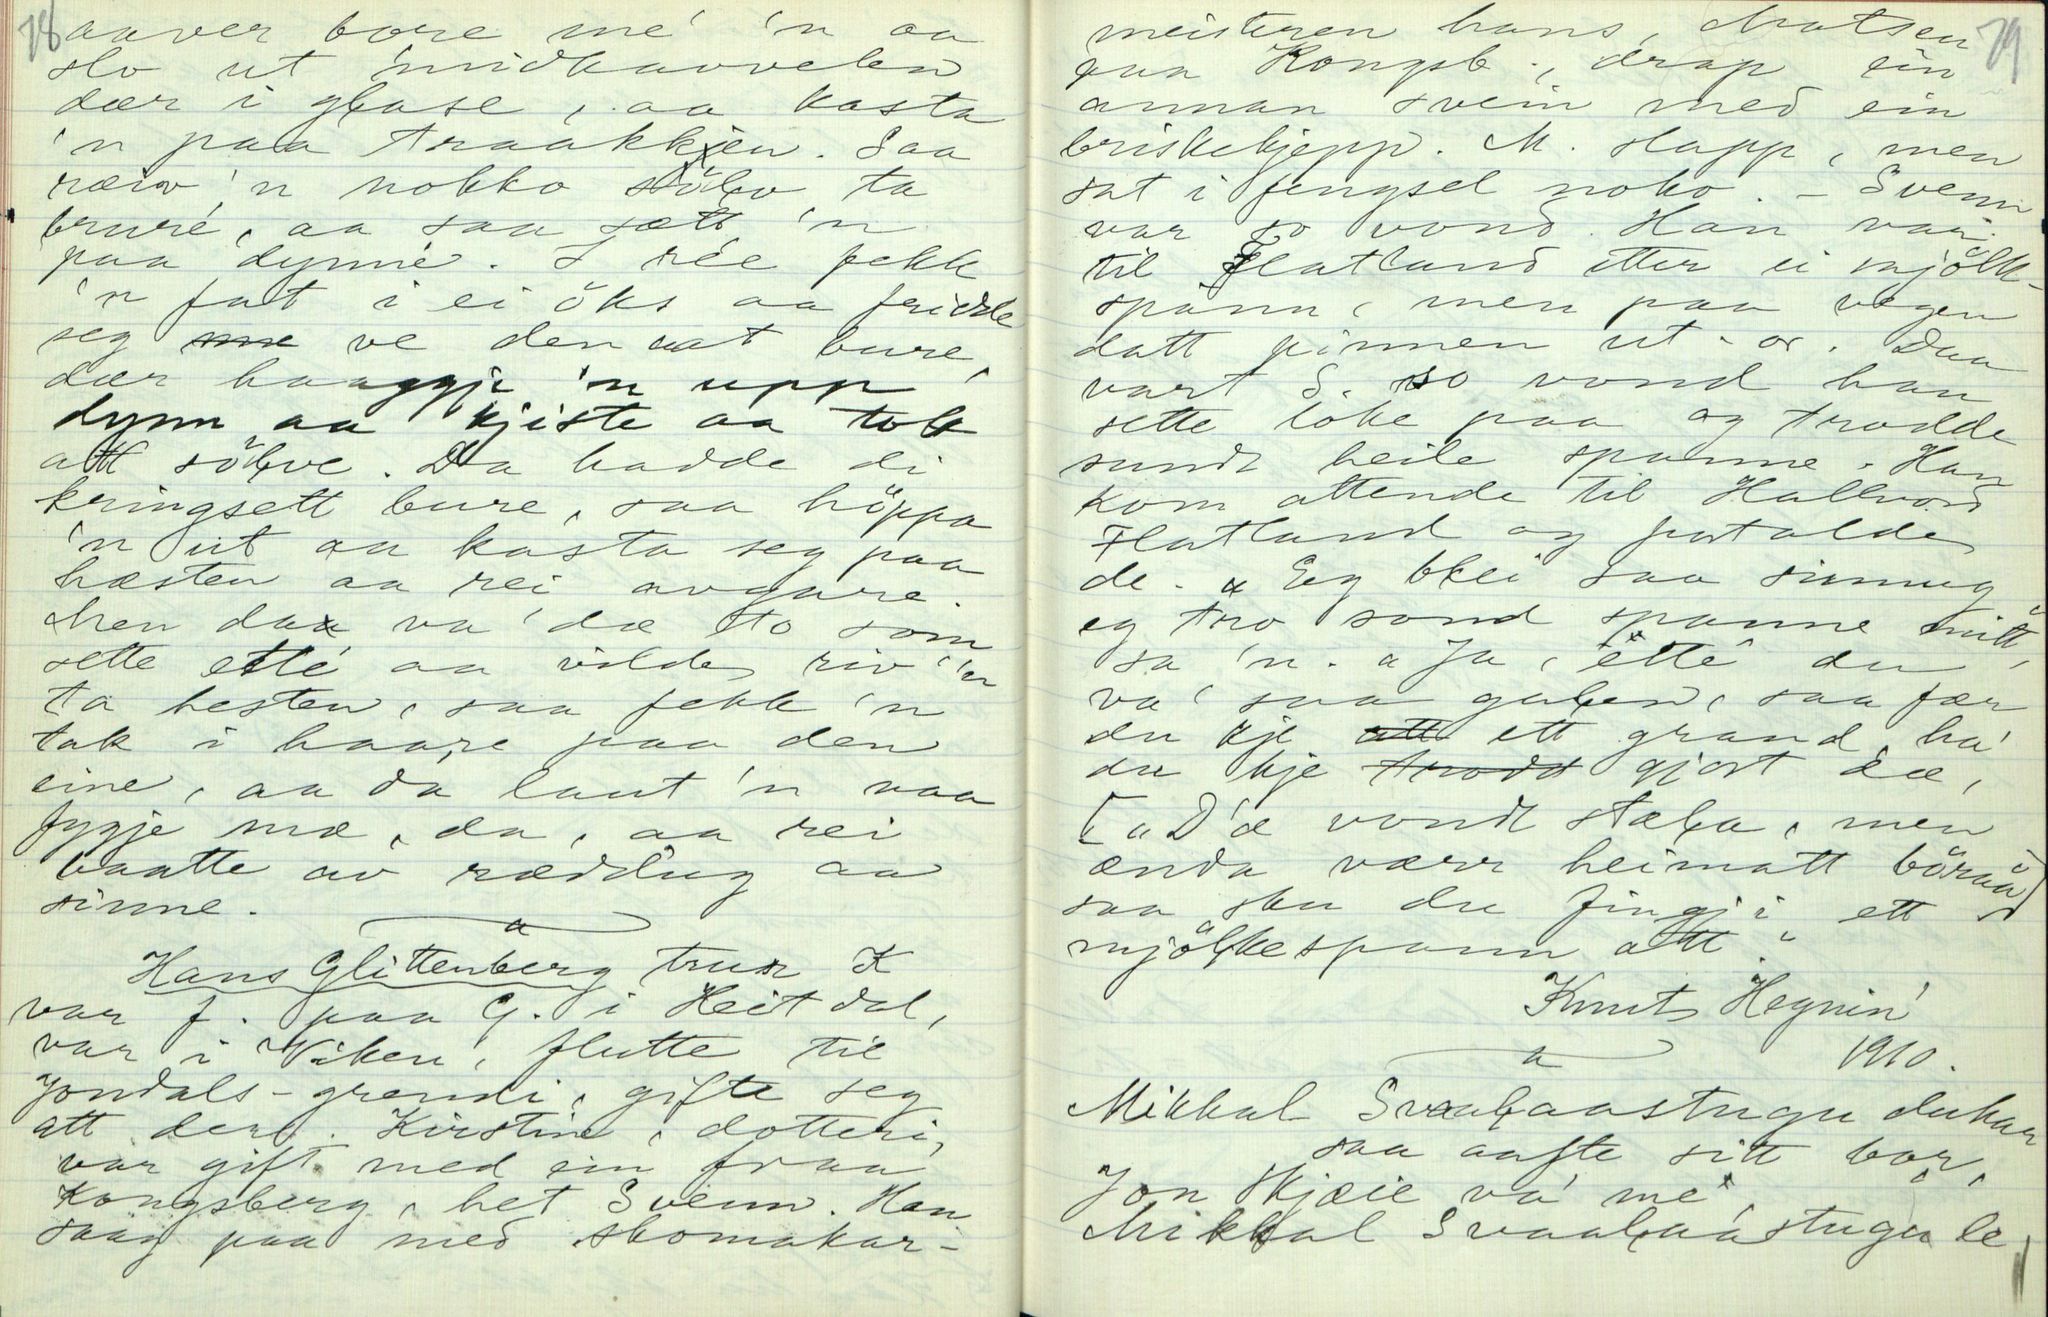 78
aaver bore me' 'n aa
slo ut midkavvelen
dær i glase, aa kasta
'n paa traakkjen. Saa
ræiv 'n nokko sölv ta
brure', aa saa sætt 'n
paa dynne'. I rée fekk
'n fat i ei öks aa
seg ve den at bure,
dær haaggje 'n upp
dynn aa kjiste aa tok
att sölve. Da hadde di
kringsett bure, saa höppa
'n ut aa kasta seg paa
hæsten aa rei avgare.
Men daa va' dæ to som
sette etté aa vilde riv 'n
ta hesten, saa fekk 'n
tak i haare paa den
eine, aa da laut 'n vaa
fygje mæ, da, aa rei
baatte av ræddug aa
sinne.
Hans Glittenberg trur K
var f. paa G. i Heitdal,
var i Viken, flutte til
Jondals-grendi, gifte seg
att der. Kirstine, dotteri,
var gift med ein fraa
Kongsberg, het Svenn. Han
saag paa med skomakar-
79
meisteren hans, Matsen
paa Kongsb., drap ein
annan svein med ein
briskekjepp. M. slapp, men
sat i fengsel noko. - Svenn
var so vond. Han var
til Flatland etter ei mjölk-
spann, men paa vegen
datt pinnen ut-or. Daa
vart S. so vond han
sette löke paa og trodde
sundt heile spanne. Han
kom attende til Hallvord
Flatland og fortalde
de. "Eg blei saa sinnug
eg tro sond spanne mitt,
sa 'n. "Ja, etté du
va' saa galen, saa fær
du kje ett grand, ha'
du kje trodd gjort dæ,
["D'æ vondt stæla, men
ænda værr heimatt böraa]
saa ska du fingji ett
mjölkespann att."
Knut Hegnin'
1910.
Mikkal Svaalaastugu dukar
saa aafte sitt bor,
Jon Skjæie va' me',
Mikkal Svaalaastugu le